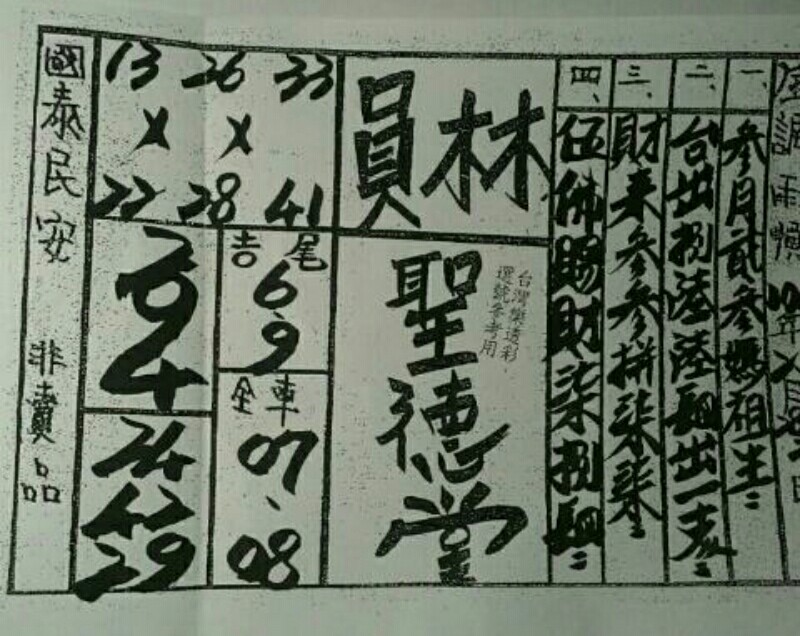 調雨順
一、參月貳參媽祖生
二、台出捌陸陸翻出一
三、財來參參拼柒柒
四、伍佛賜財柒捌翻
員林
聖德堂
台灣樂透彩
選號參考用
13 26 33
X X
22 28 41
吉尾
6.9
全車
07、
08
24
42
29
國泰民安 非賣品